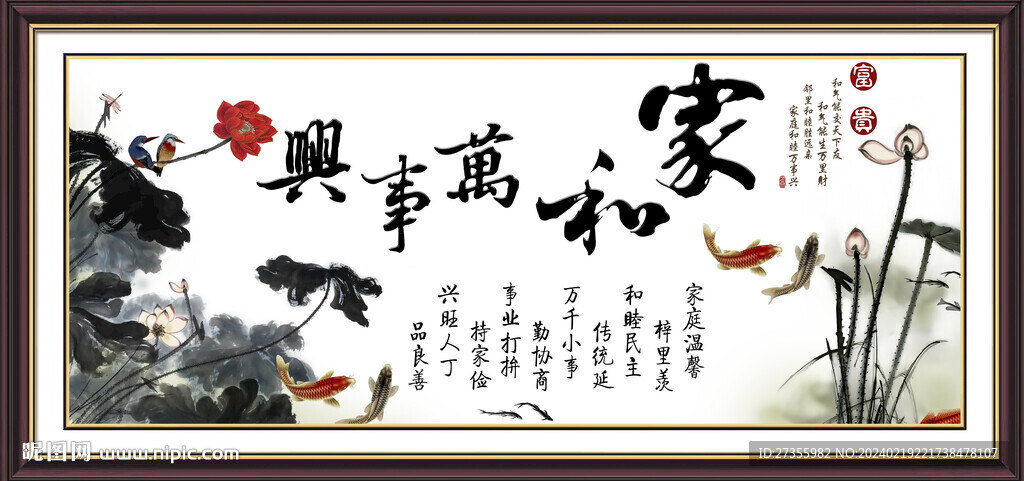 家和萬事興
富貴
和气能交天下友
和气能生万里财
邻里和睦胜远亲
家庭和睦万事兴
家庭温馨
梓里羡
和睦民主
传统延
万千小事
勤协商
事业打拚
持家俭
兴旺人丁
品良善
昵图网 www.nipic.com
ID:27355982 NO:20240219221738478107